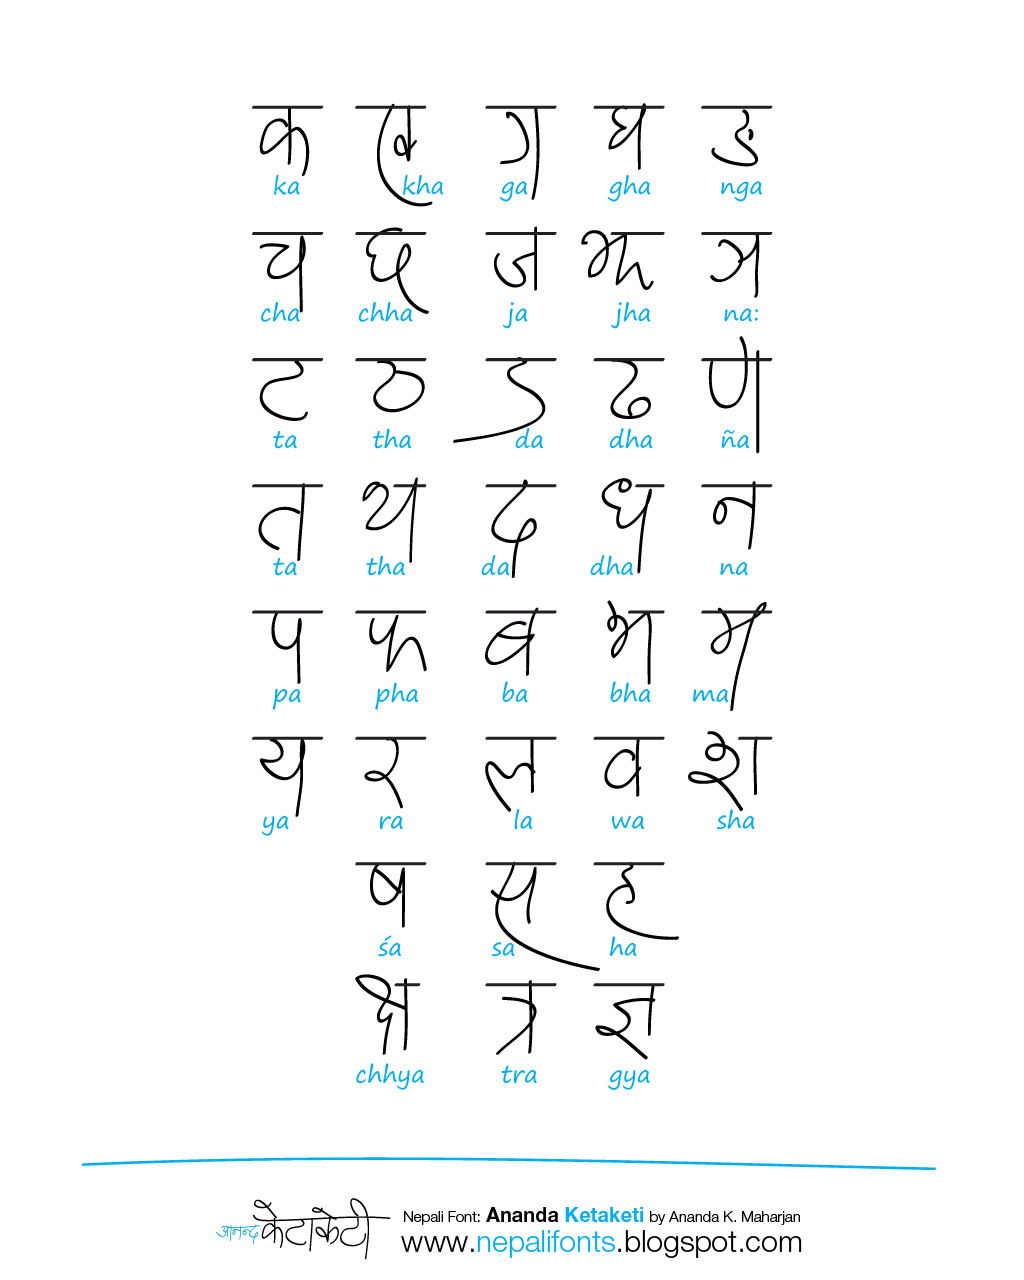 क ख ग घ ङ
ka kha ga gha nga
च छ ज झ ञ
cha chha ja jha na:
ट ठ ड ढ ण
ta tha da dha ña
त थ द ध न
ta tha da dha na
प फ ब भ म
pa pha ba bha ma
य र ल व श
ya ra la wa sha
ष स ह
śa sa ha
क्ष त्र ज्ञ
chhya tra gya
आनन्द केटाकेटी Nepali Font: Ananda Ketaketi by Ananda K. Maharjan
www.nepalifonts.blogspot.com